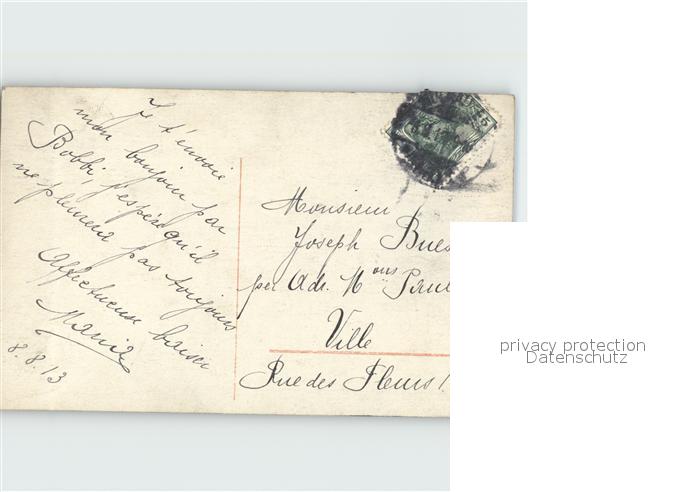 Je t'envoie
mon bonjour par
Bobbi, j'espère qu'il
ne pleurera pas toujours
Affectueux baiser
Maria
8.8.13
Monsieur
Joseph Bues
per Adr. Mons Paul
Ville
Rue des Fleurs 1.
privacy protection
Datenschutz